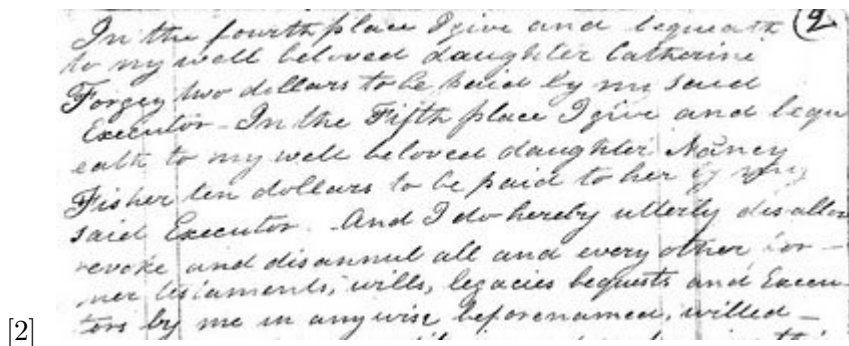 In the fourth place I give and bequeath (2
to my well beloved daughter Catherine
Forgey two dollars to be paid by my said
Executor - In the Fifth place I give and bequ
eath to my well beloved daughter Nancy
Fisher ten dollars to be paid to her by my
said Executor. And I do hereby utterly disallow
revoke and disannul all and every other for -
mer testaments, wills, legacies bequests and Execu-
tors by me in any wise beforenamed, willed -
[2]